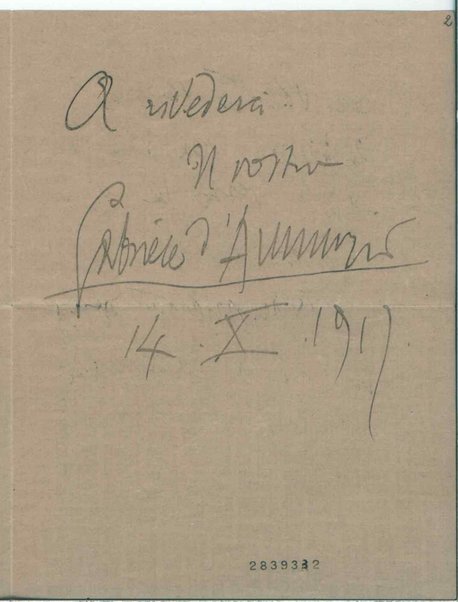 2
A rivederci
Il vostro
Gabriele d'Annunzio
14. X. 1917.
2839332